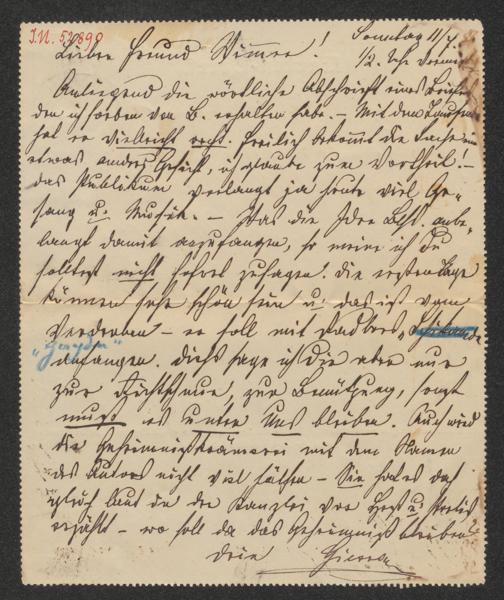 I.N. 52.899
Sonntag 11/7.
Lieber Freund Wimmer!
1/2 2 Uhr
Anliegend die wörtliche Abschrift eines Briefes
den ich soeben von B. erhalten habe. – Mit dem
hat er vielleicht recht. Freilich bekommt die Sache ein
etwas anderes Gesicht, ich glaube zum Vortheil! –
das Publikum verlangt ja heute viel Ge-
sang u. Musik. – Was die Idee betr. anbe-
langt damit anzufangen, so meine ich Du
solltest nicht sofort zusagen! Die ersten Tage
können sehr schön sein u. das ist vom
Verderben – er soll mit
"Haydn"
anfangen. Dieß sage ich Dir aber nur
zur Richtschnur, zur Benützung, sonst
muß es unter Uns bleiben. Auch wird
die Geheimnißkrämerei mit dem Namen
des Autors nicht viel helfen – Sie hat es doch
gleich laut in der Kanzlei vor Herz u.
erzählt – wo soll da das Geheimniß bleiben?
Dein